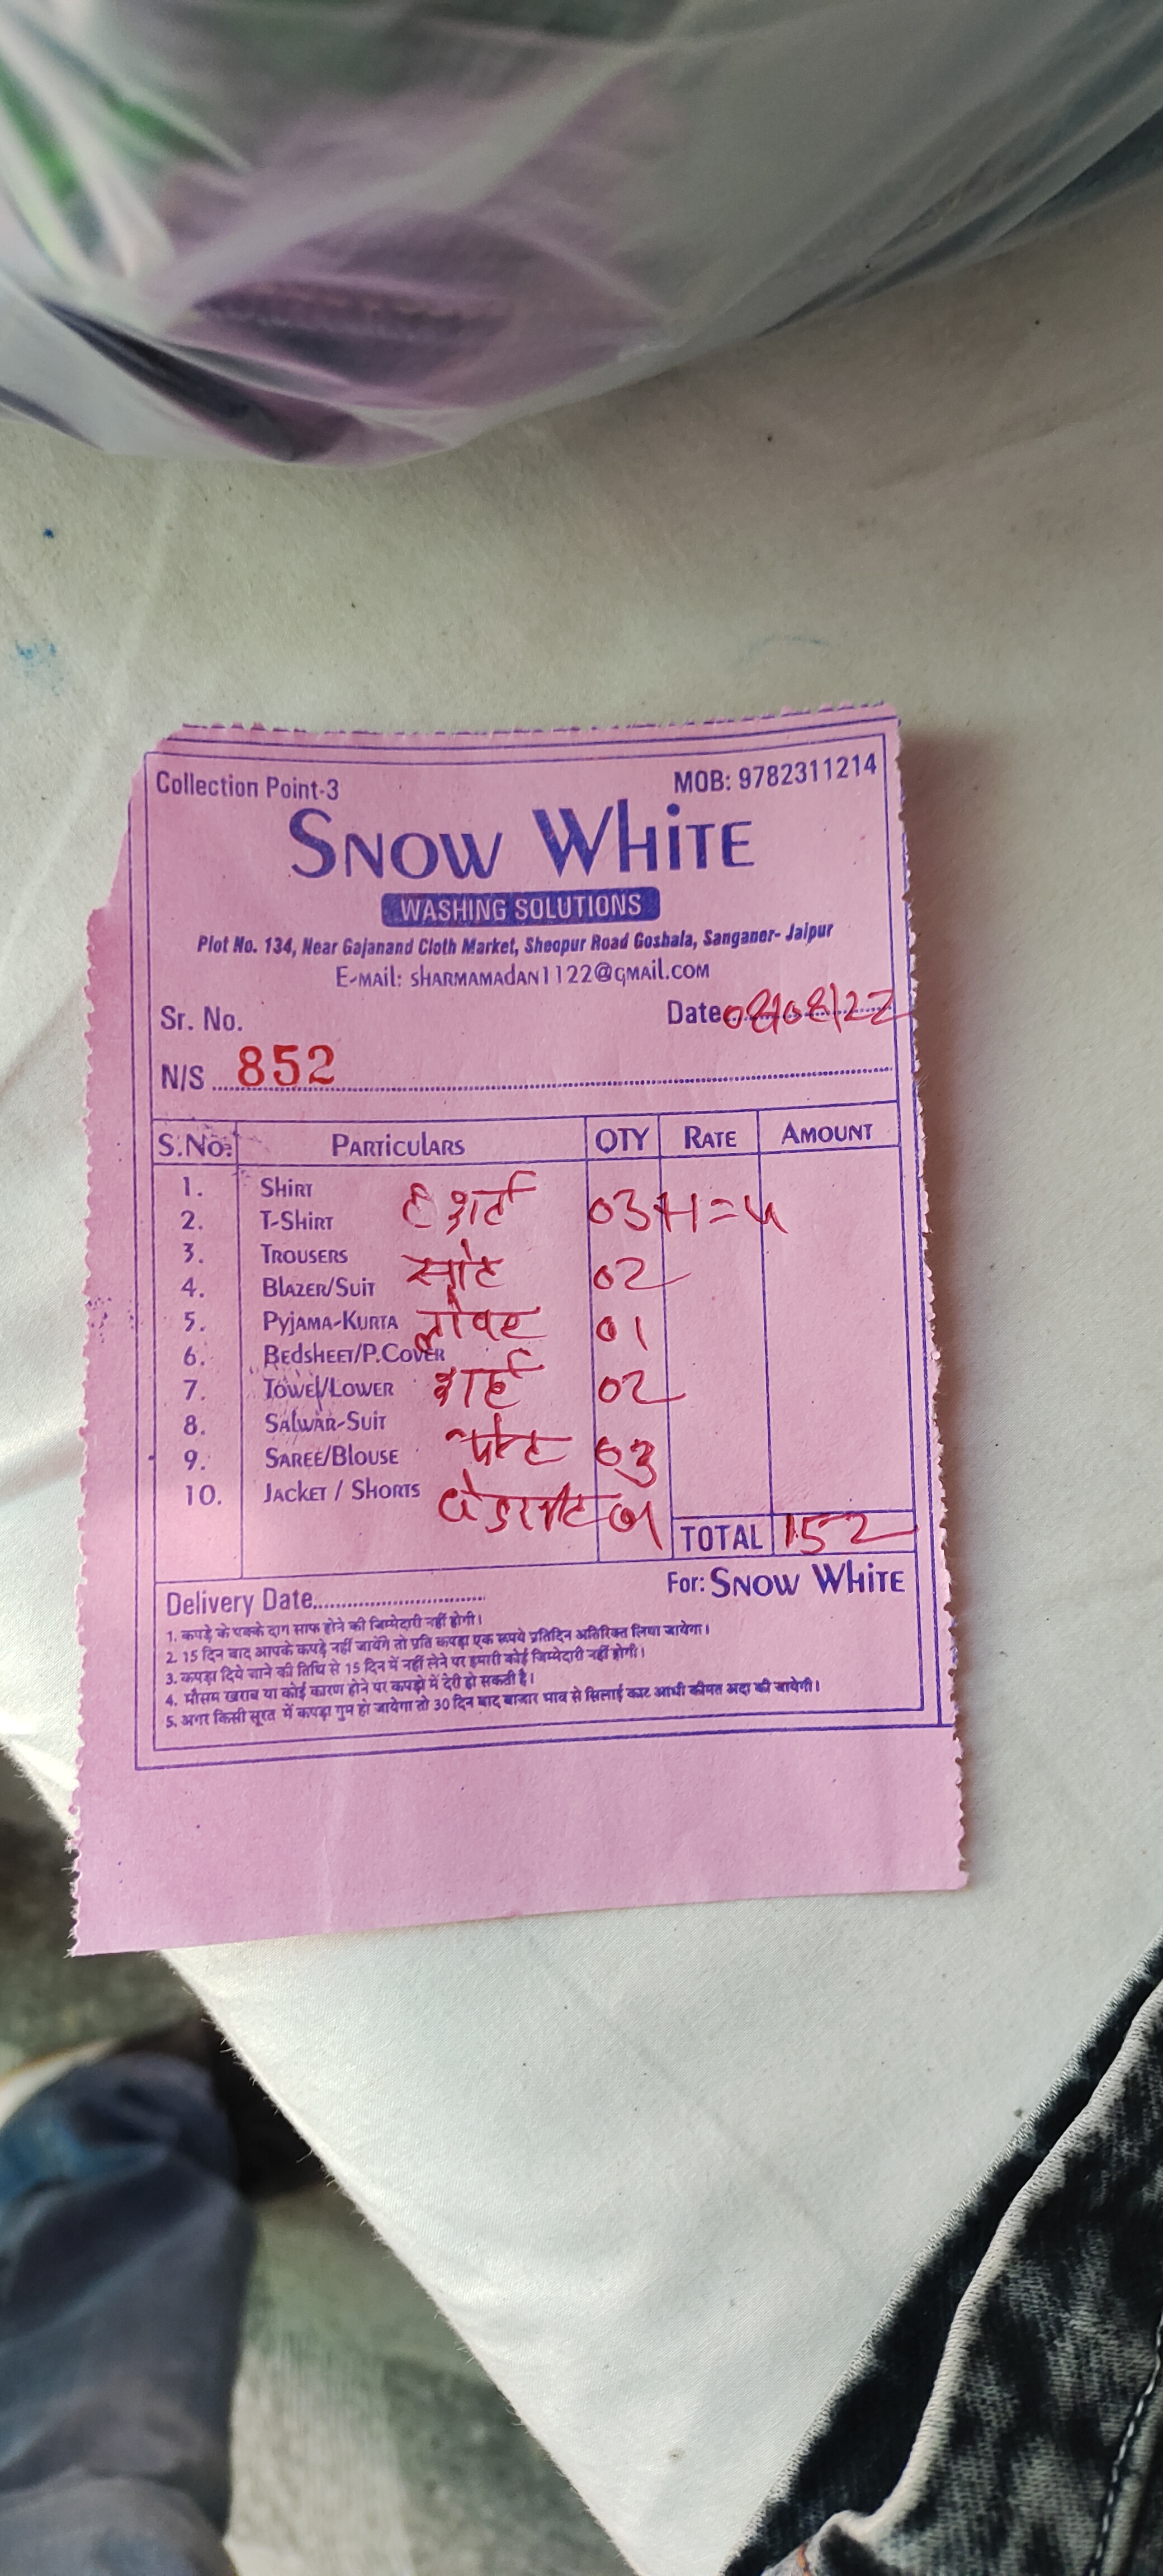 Collection Point-3 MOB: 9782311214
SNOW WHITE
WASHING SOLUTIONS
Plot No. 134, Near Gajanand Cloth Market, Sheopur Road Goshala, Sanganer- Jaipur
E-MAIL: SHARMAMADAN1122@GMAIL.COM
Sr. No. Date 08/08/22
N/S 852
S.No. PARTICULARS QTY RATE AMOUNT
1. SHIRT
2. T-SHIRT टी शर्ट 03+1=4
3. TROUSERS
4. BLAZER/SUIT 02
5. PYJAMA-KURTA लोवर 01
6. BEDSHEET/P.COVER
7. TOWEL/LOWER शर्ट 02
8. SALWAR-SUIT
9. SAREE/BLOUSE पेन्ट 03
10. JACKET / SHORTS
TOTAL 152
Delivery Date For: SNOW WHITE
1. कपड़े के पक्के दाग साफ होने की जिम्मेदारी नहीं होगी।
2. 15 दिन बाद आपके कपड़े नहीं जायेंगे तो प्रति कपड़ा एक रूपये प्रतिदिन अतिरिक्त लिया जायेगा।
3. कपड़ा दिये जाने की तिथि से 15 दिन में नहीं लेने पर हमारी कोई जिम्मेदारी नहीं होगी।
4. मौसम खराब या कोई कारण होने पर कपड़ो में देरी हो सकती है।
5. अगर किसी सूरत में कपड़ा गुम हो जायेगा तो 30 दिन बाद बाजार भाव से सिलाई काट आधी कीमत अदा की जायेगी।